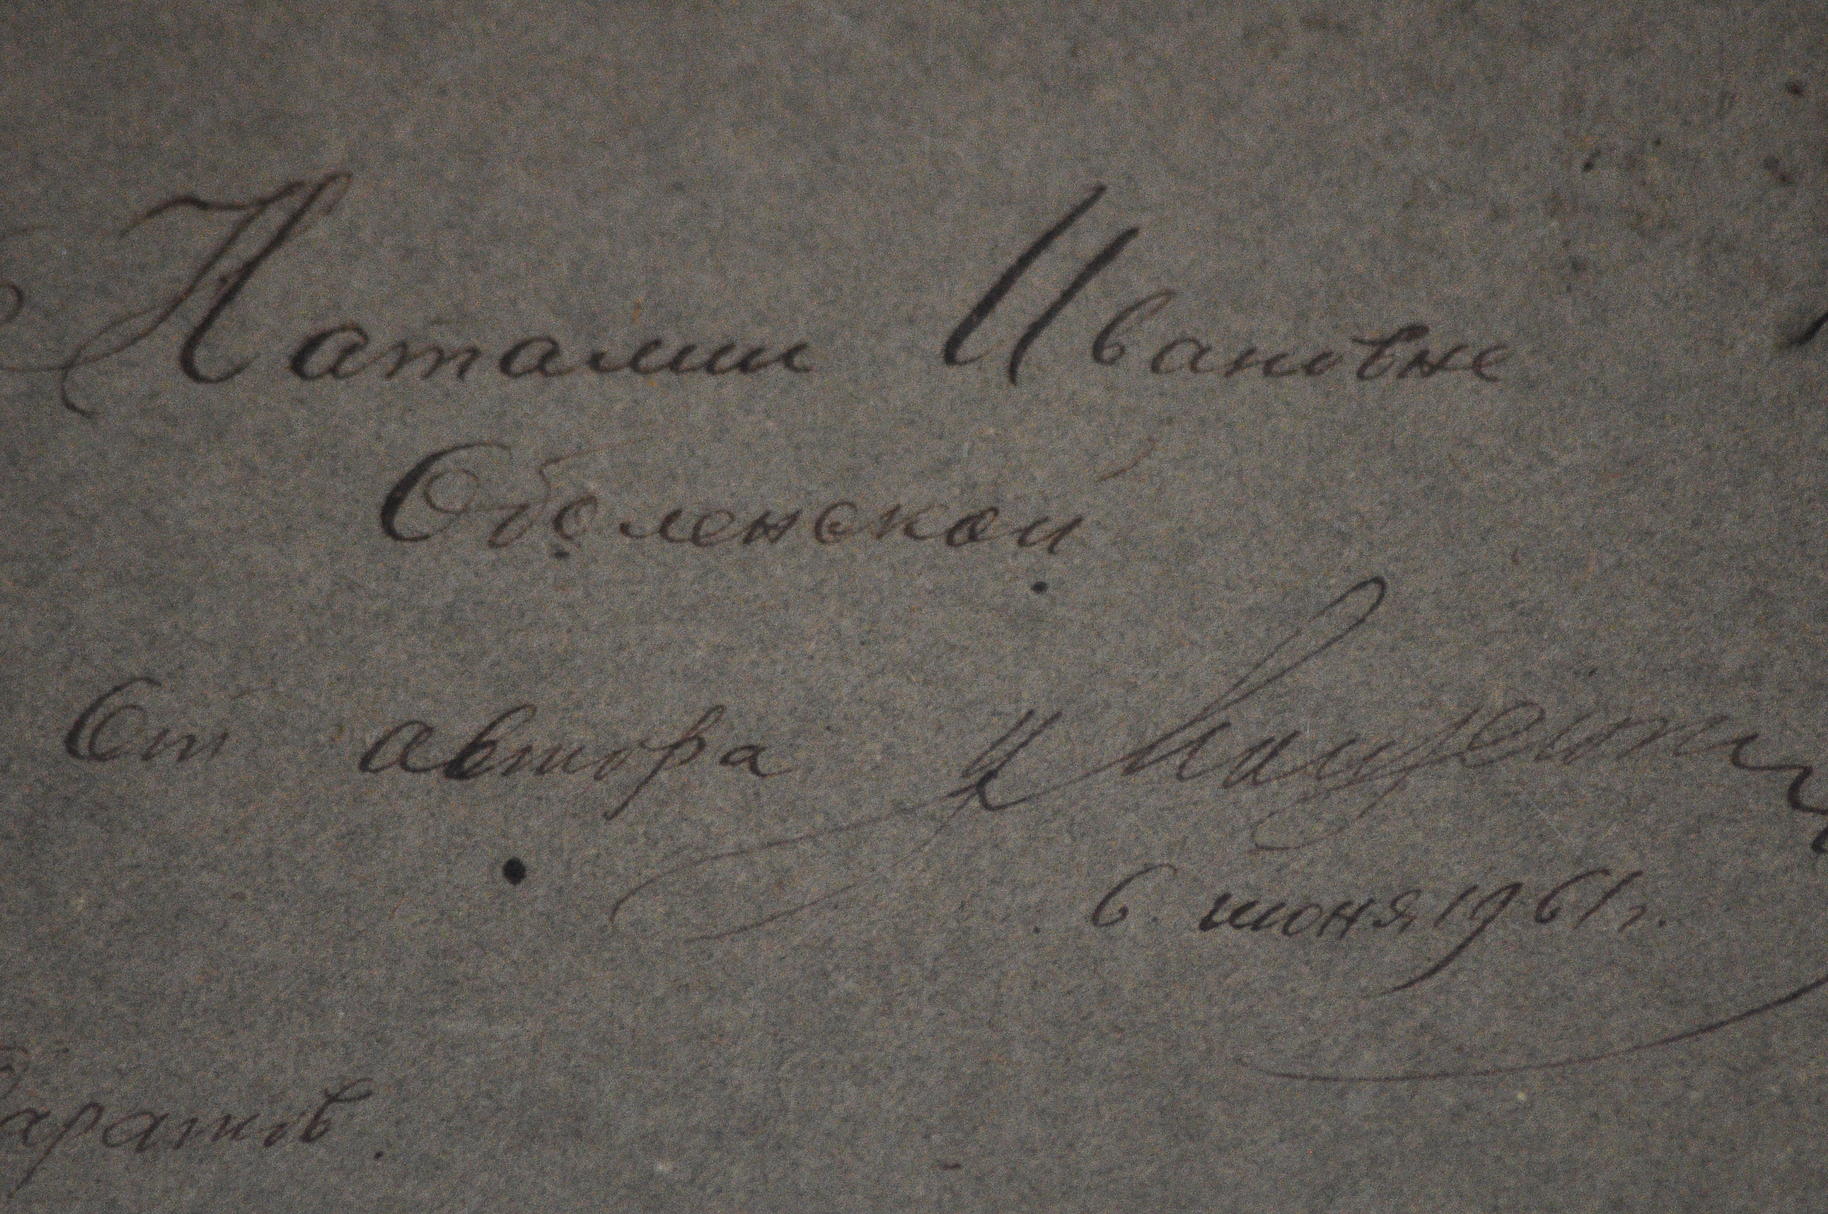 Наталии Ивановне
Оболенской
От автора
6 июня 1961 г.
Саратов.